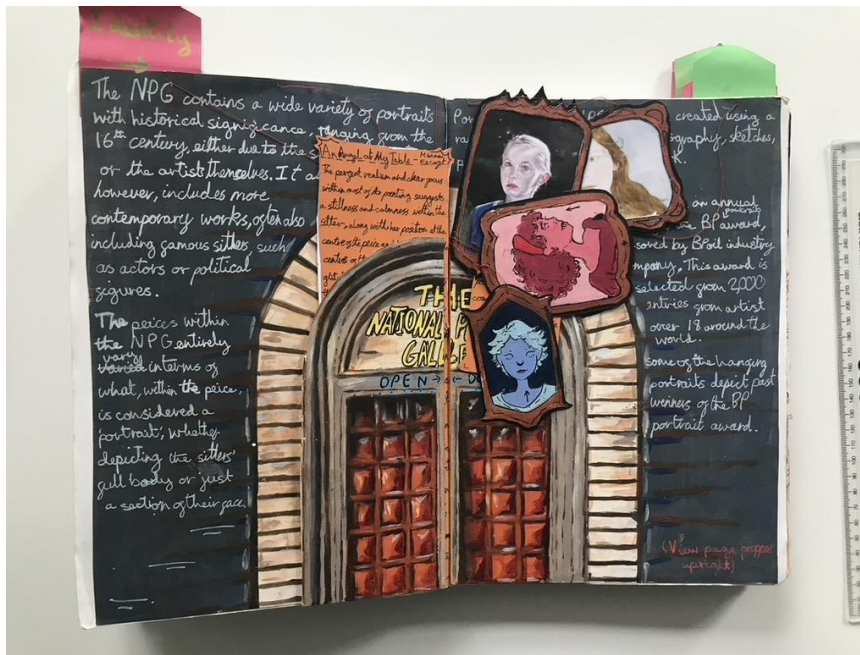 Identity
The NPG contains a wide variety of portraits
with historical significance, ranging from the
16th century, either due to the
or the artist themselves. It
however, includes more
contemporary works, often also
including famous sitters, such
as actors or political
figures.
The peices within
the NPG entirely
vary
varied interms of
what, within the peice,
is considered a
portrait; whether
depicting the sitters'
full body or just
a section of their face.
An Angel at My Table -
The perfect realism and clear focus
within most of its painting suggests
a stillness and calmness within the
sitter, along with her position at the
centre of the peice
THE
NATIONAL P
GALLE
OPEN
created using a
ography, sketches,
an annual
portrait
the BP award,
sored by BP oil industry
mpany. This award is
selected from 2,000
entries from artist
over 18 around the
world.
some of the hanging
portraits depict past
winners of the BP
portrait award.
(View page propped
upright)